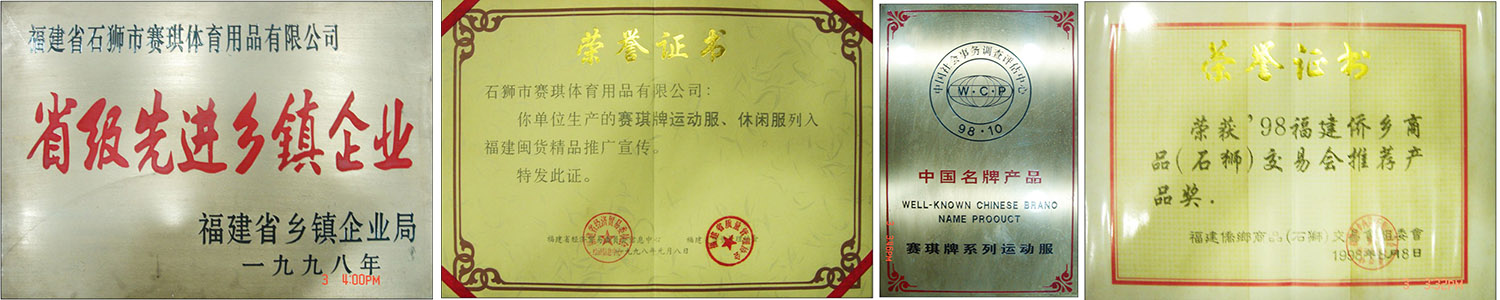 福建省石狮市赛琪体育用品有限公司
省级先进乡镇企业
福建省乡镇企业局
一九九八年
3 4:00PM
荣誉证书
石狮市赛琪体育用品有限公司:
你单位生产的赛琪牌运动服、休闲服列入
福建闽货精品推广宣传。
特发此证。
福建省经济
息中心
福建
一九九八年元月八日
中国社会事务调查评估中心
W·C·P
98·10
中国名牌产品
WELL-KNOWN CHINESE BRAND
NAME PROOUCT
赛琪牌系列运动服
荣誉证书
荣获'98福建侨乡商
品(石狮)交易会推荐产
品奖.
福建僑鄉商品(石狮)交
組委會
1998年
月18日
3:32PM